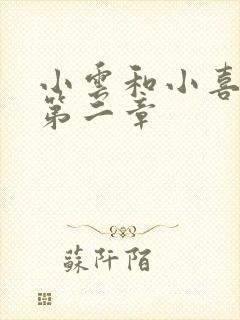 小雲和小喜
第二章
蘇阡陌